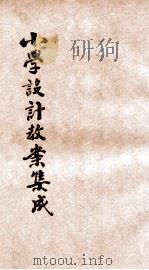 小學設計教案集成
www.mtoou.info